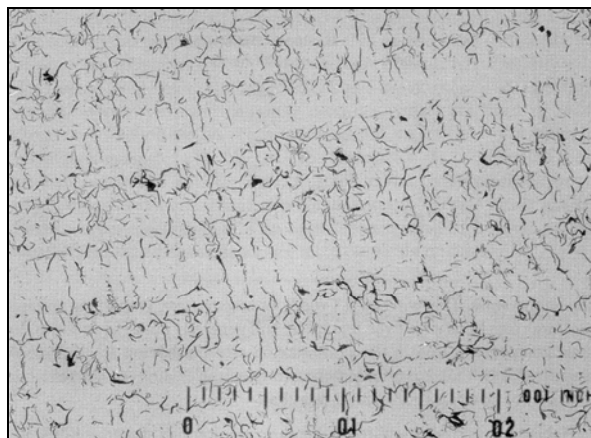 .001 INCH
0 .01 .02